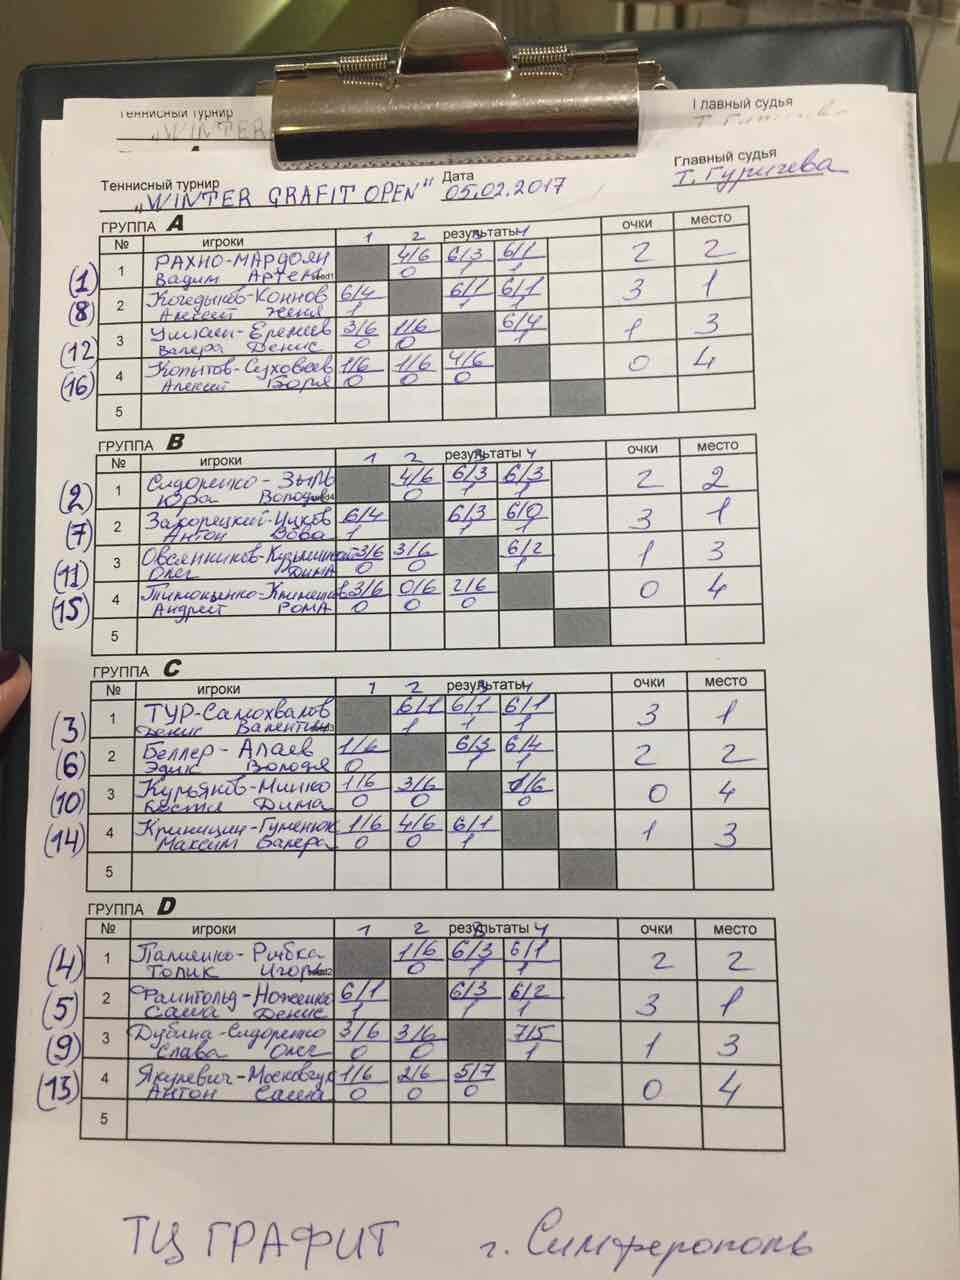 Теннисный турнир
Главный судья
"WINTER
Теннисный турнир "WINTER GRAFIT OPEN" Дата 05.02.2017 Главный судья Т. Гуричева
ГРУППА A
№ игроки 1 2 результаты 3 4 очки место
(1) 1 РАХНО-МАРДОЯН 4/6 6/3 6/1 2 2
Вадим Артем 0 1 1
(8) 2 Кочедыков-Коннов 6/4 6/1 6/1 3 1
Алексей Женя 1 1 1
(12) 3 Еремеев 3/6 1/6 6/4 1 3
Валера Денис 0 0 1
(16) 4 Копытов-Суховеев 1/6 1/6 4/6 0 4
Алексей Боря 0 0 0
5
ГРУППА B
№ игроки 1 2 результаты 3 4 очки место
(2) 1 Сидоренко-Зыль 4/6 6/3 6/3 2 2
Юра Володя 0 1 1
(7) 2 Закорецкий- 6/4 6/3 6/0 3 1
Антон Вова 1 1 1
(11) 3 Овсянников- 3/6 3/6 6/2 1 3
Олег Дима 0 0 1
(15) 4 Тимощенко- 3/6 0/6 2/6 0 4
Андрей Рома 0 0 0
5
ГРУППА C
№ игроки 1 2 результаты 3 4 очки место
(3) 1 ТУР-Самохвалов 6/1 6/1 6/1 3 1
Денис Валентин 1 1 1
(6) 2 Беллер-Алаев 1/6 6/3 6/4 2 2
Эдик Володя 0 1 1
(10) 3 Курьянов-Минко 1/6 3/6 1/6 0 4
Костя Дима 0 0 0
(14) 4 Криницин-Гуменюк 1/6 4/6 6/1 1 3
Максим Валера 0 0 1
5
ГРУППА D
№ игроки 1 2 результаты 3 4 очки место
(4) 1 Палиенко-Рыбка 1/6 6/3 6/1 2 2
Толик Игорь 0 1 1
(5) 2 Файнгольд-Ноженко 6/1 6/3 6/2 3 1
Саша Денис 1 1 1
(9) 3 Дубина-Сидоренко 3/6 3/6 7/5 1 3
Слава Олег 0 0 1
(13) 4 Якуревич-Московчук 1/6 2/6 5/7 0 4
Антон Саша 0 0 0
5
ТЦ ГРАФИТ г. Симферополь